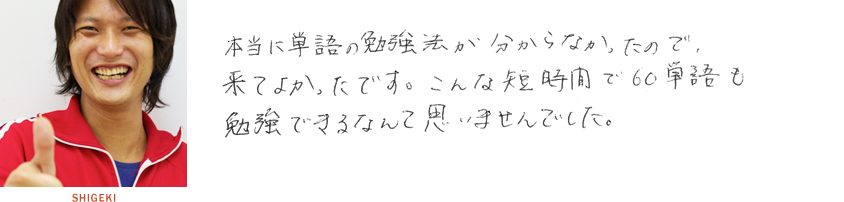 本当に単語の勉強法が分からなかったので、
来てよかったです。こんな短時間で60単語も
勉強できるなんて思いませんでした。
SHIGEKI